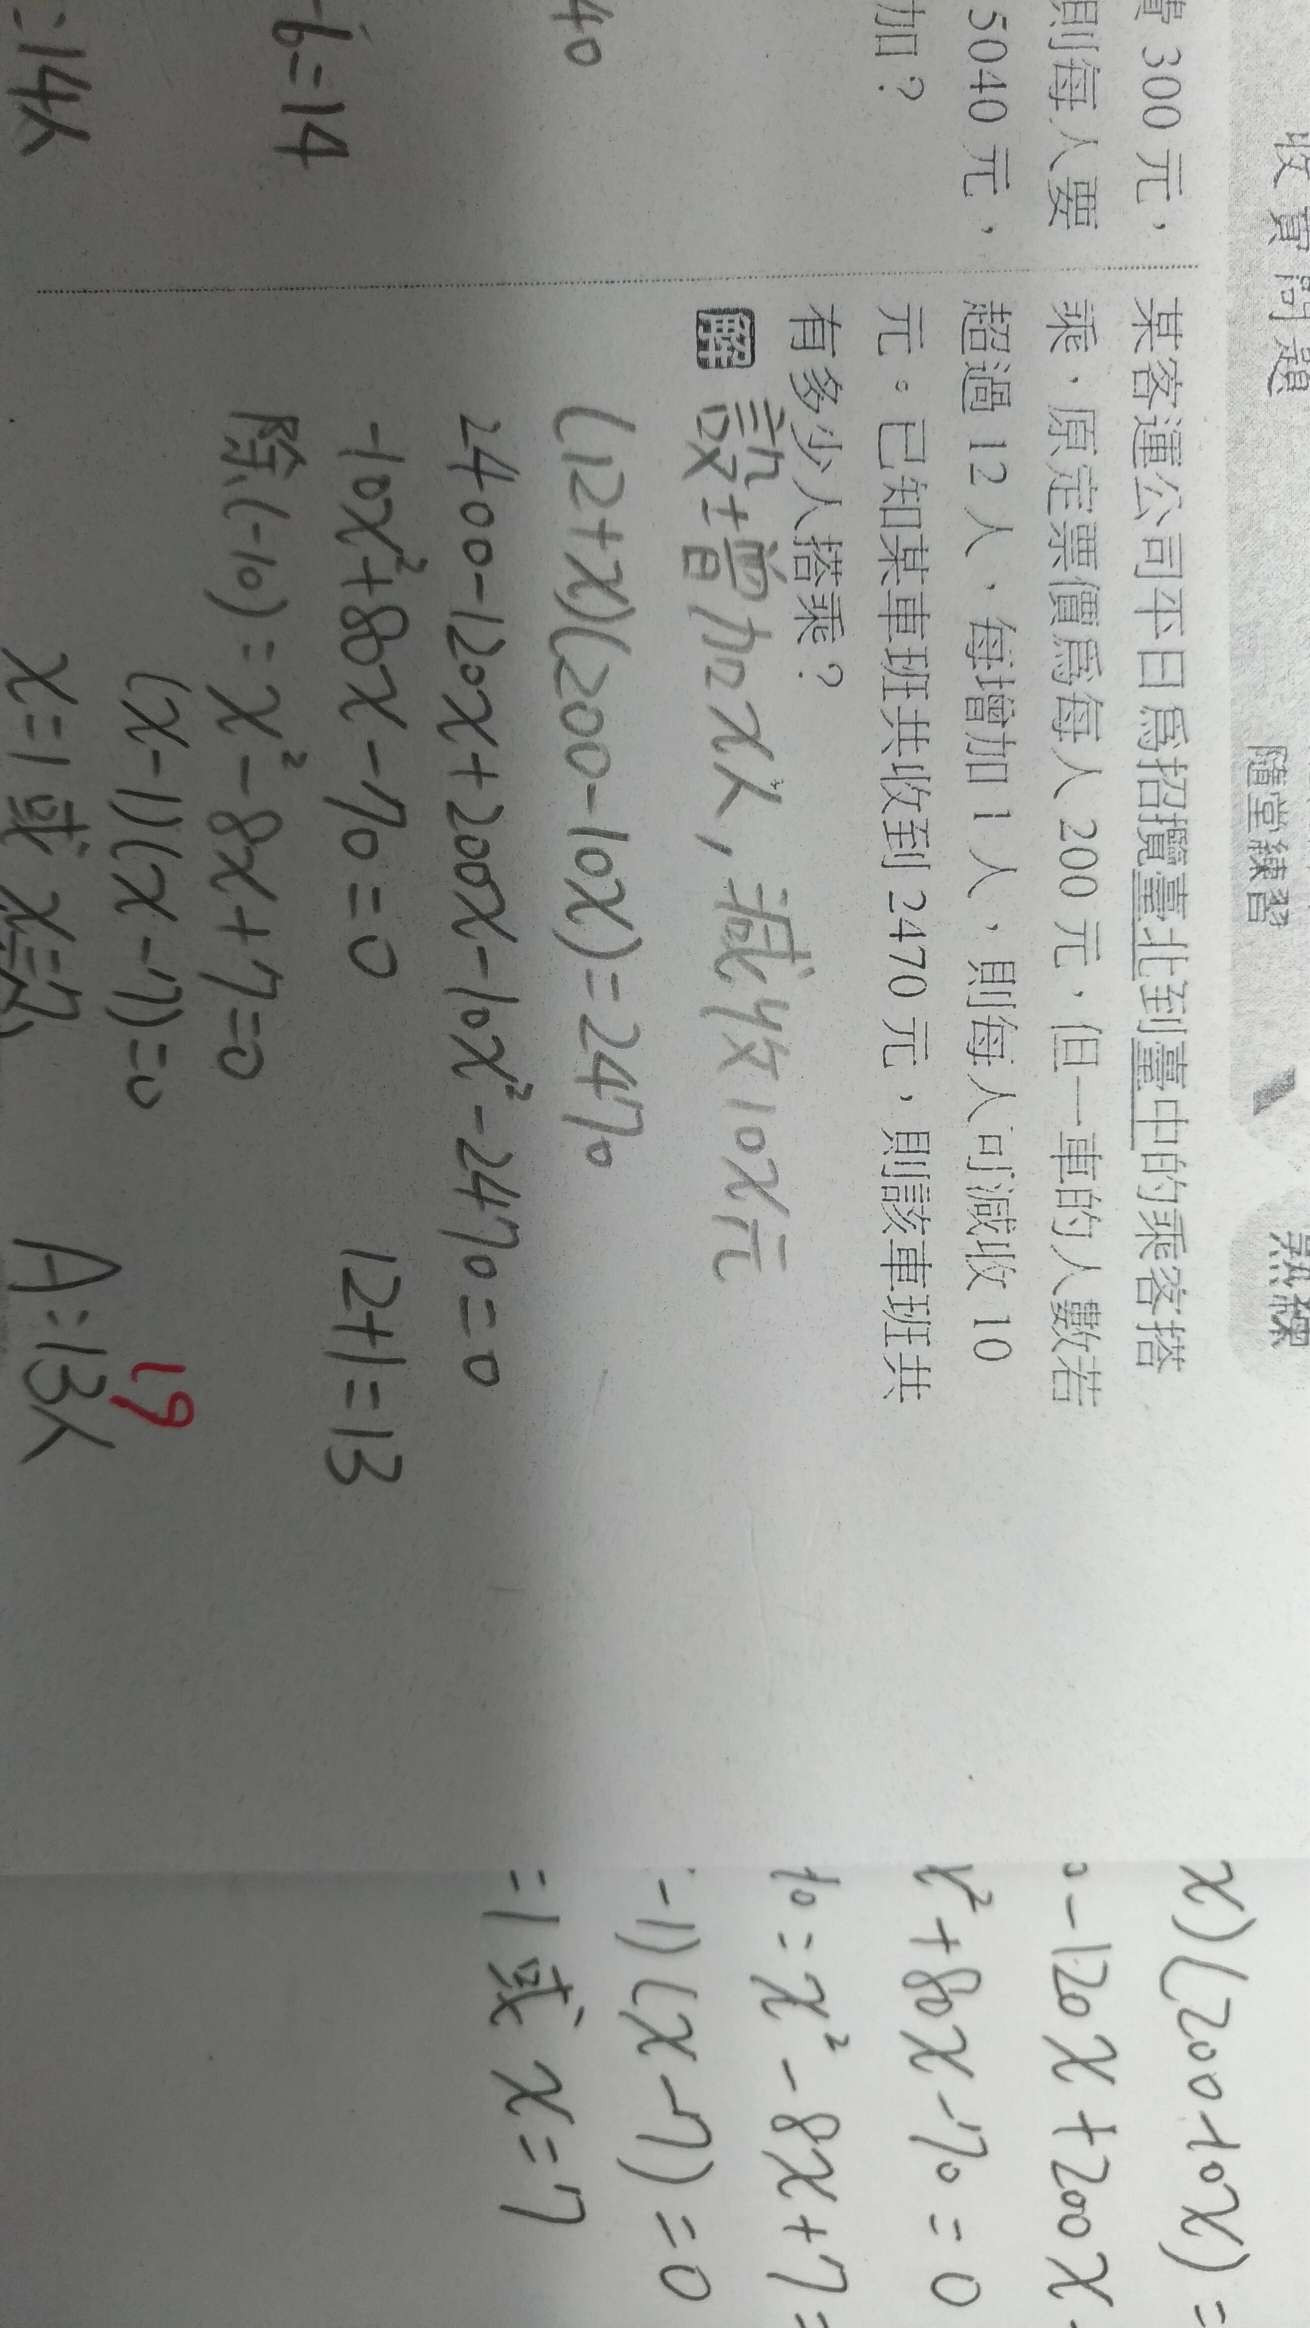 收費問題
隨堂練習
熟練
費 300 元，
則每人要
5040 元，
加？
40
-6=14
:14人
某客運公司平日為招攬臺北到臺中的乘客搭
乘，原定票價為每人 200 元，但一車的人數若
超過 12 人，每增加 1 人，則每人可減收 10
元。已知某車班共收到 2470 元，則該車班共
有多少人搭乘？
解 設增加x人，減收10x元
(12+x)(200-10x)=2470
2400-120x+200x-10x²-2470=0
-10x²+80x-70=0
12+1=13
除(-10)=x²-8x+7=0
(x-1)(x-7)=0
19
x=1或 x=7
A:13人
x)(200-10x)=
0-120x+200x-
x²+80x-70=0
70=x²-8x+7=
-1)(x-7)=0
=1或 x=7